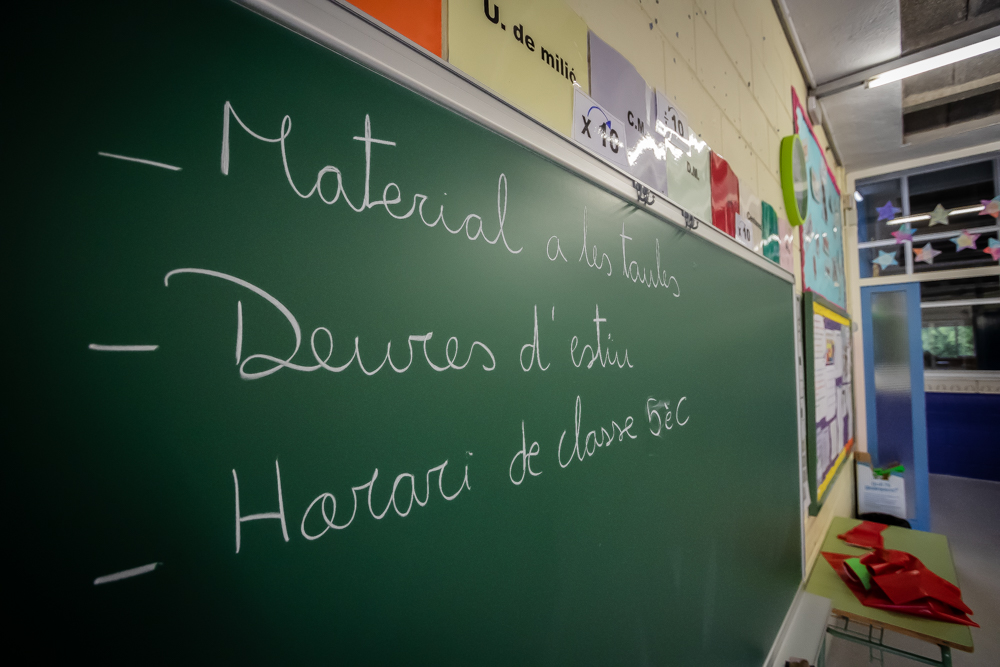 U. de milió
C.M.
X 10
÷ 10
D.M.
x 10
- Material a les taules
- Deures d'estiu
- Horari de classe 5èC